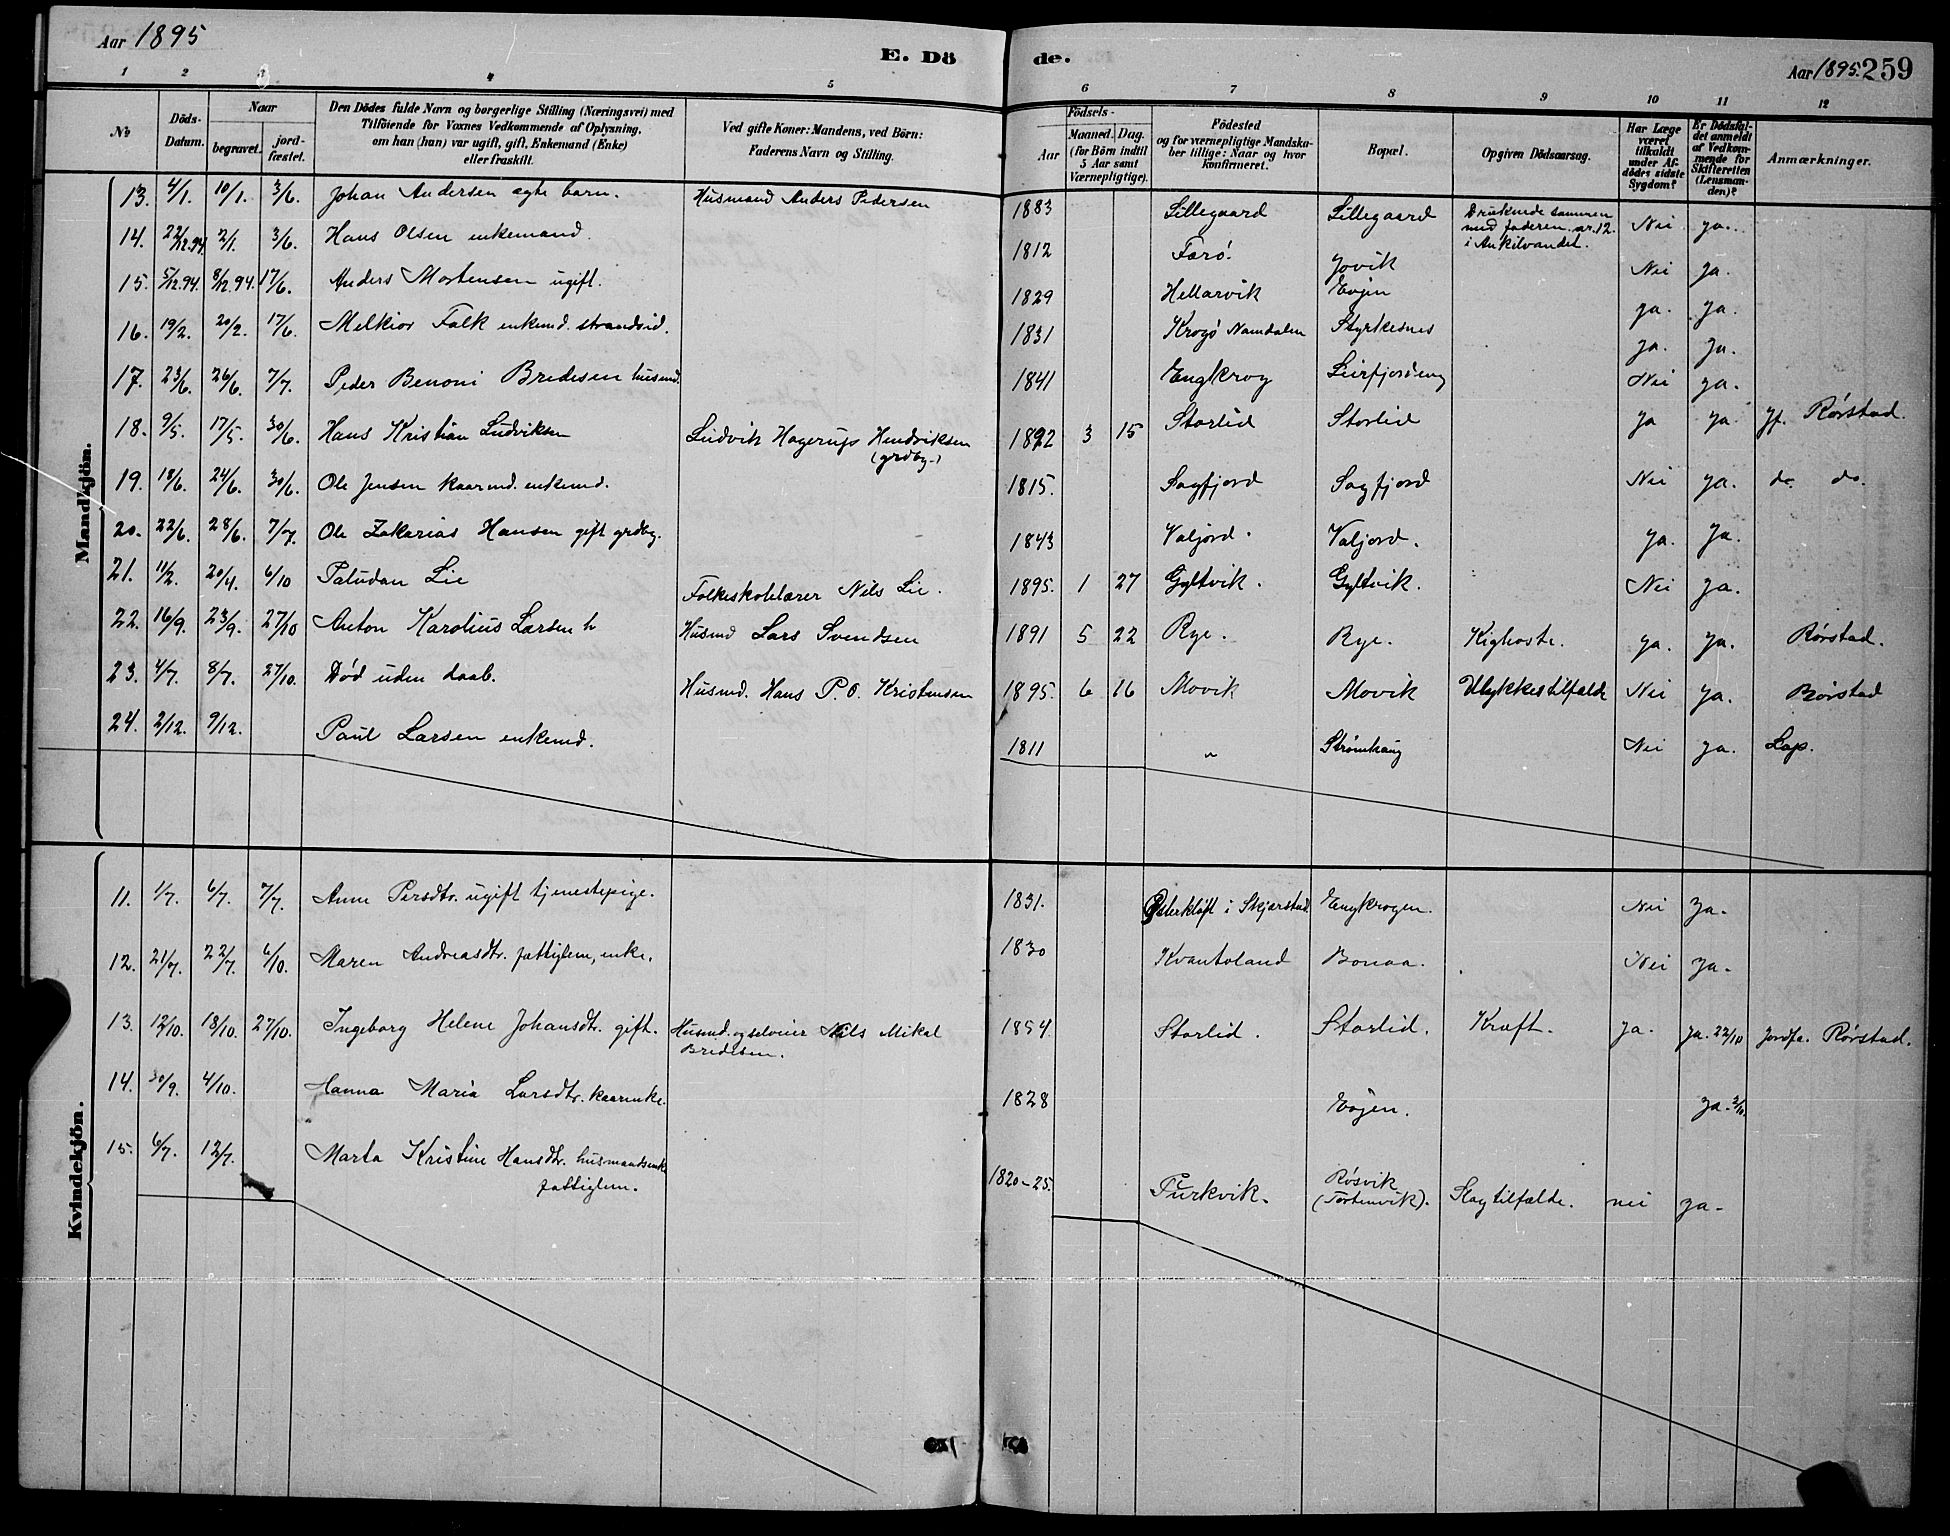 Aar 1895
E. Dö
de.
Aar 1895. 259
1 2 3 4 5 6 7 8 9 10 11 12
No
Döds-Datum.
Naar
begravet.
jord-fæstet.
Den Dödes fulde Navn og borgerlige Stilling (Næringsvei) med
Tilföiende for Voxnes Vedkommende af Oplysning,
om han (hun) var ugift, gift, Enkemand (Enke)
eller fraskilt.
Ved gifte Koner: Mandens, ved Börn:
Faderens Navn og Stilling.
Födsels-
Aar
Maaned. Dag.
(for Börn indtil
5 Aar samt
Værnepligtige).
Födested
og for værnepligtige Mandska-
ber tillige: Naar og hvor
konfirmeret.
Bopæl.
Opgiven Dödsaarsag.
Har Læge
været
tilkaldt
under Af-
dödes sidste
Sygdom?
Er Dödsfal-
det anmeldt
af Vedkom-
mende for
Skifteretten
(Lensman-
den)?
Anmærkninger.
Mandkjön.
13. 4/1. 10/1. 3/6. Johan Andersen ægte barn. Husmand Anders Pedersen 1883 Lillegaard Lillegaard Druknede sammen
med faderen nr. 12.
i Ankilvandet. Nei ja.
14. 22/12.94. 2/1. 3/6. Hans Olsen enkemand. 1812 Farø. Jovik Nei ja.
15. 5/12.94. 8/12.94. 17/6. Anders Mortensen ugift. 1829 Hellarvik Evjen ja. ja.
16. 19/2. 20/2. 17/6. Melkior Falk enkemd. strandsid. 1831 Krogø Namdalen Styrkesnes ja. ja.
17. 23/6. 26/6. 7/7. Peder Benoni Bredesen husmd. 1841 Engkrog Leirfjordeng Nei ja.
18. 9/5. 17/5. 30/6. Hans Kristian Ludviksen Ludvik Hagerup Hendriksen
(grdbg.) 1892 3 15 Storlid Storlid ja ja. jf. Rørstad.
19. 18/6. 24/6. 30/6. Ole Jensen kaarmd. enkemd. 1815. Sagfjord Sagfjord Nei ja. do. do.
20. 22/6. 28/6. 7/7. Ole Zakarias Hansen gift grdbg. 1843 Valjord. Valjord. ja. ja.
21. 11/2. 20/4. 6/10 Paludan Lie Folkeskolelærer Nils Lie. 1895. 1 27 Gyltvik. Gyltvik. Nei ja.
22. 16/9. 23/9. 27/10 Anton Karolius Larsen Husmd Lars Svendsen 1891 5 22 Rye. Rye. Kighoste. ja. ja. Rørstad.
23. 4/7. 8/7. 27/10. Død uden daab. Husmd. Hans P.O. Kristensen 1895. 6 16 Movik Movik Ulykkestilfælde Nei ja. Rørstad
24. 2/12. 9/12. Paul Larsen enkemd. 1811 " Strømhaug Nei ja. Lap.
Kvindekjön.
11. 1/7. 6/7. 7/7. Anne Persdtr. ugift tjenestepige. 1831. Østerkløft i Skjerstad Engkrogen. Nei Ja.
12. 21/7. 22/7. 6/10. Maren Andreasdtr. fattiglem, enke. 1830 Kvantoland Bonaa. Nei ja.
13. 12/10. 18/10. 27/10. Ingeborg Helene Johansdtr. gift. Husmd. og selveier Nils Mikal
Bredesen. 1854. Storlid. Storlid. Kræft. ja. ja. 22/10 jordfa. Rørstad.
14. 30/9. 4/10. Hanna Maria Larsdtr. kaarenke. 1828 Evjen. ja. 3/10.
15. 6/7. 12/7. Marta Kristine Hansdtr. husmandsenke
fattiglem. 1820-25. Furkvik. Røsvik
(Tortenvik). Slagtilfælde. nei ja.